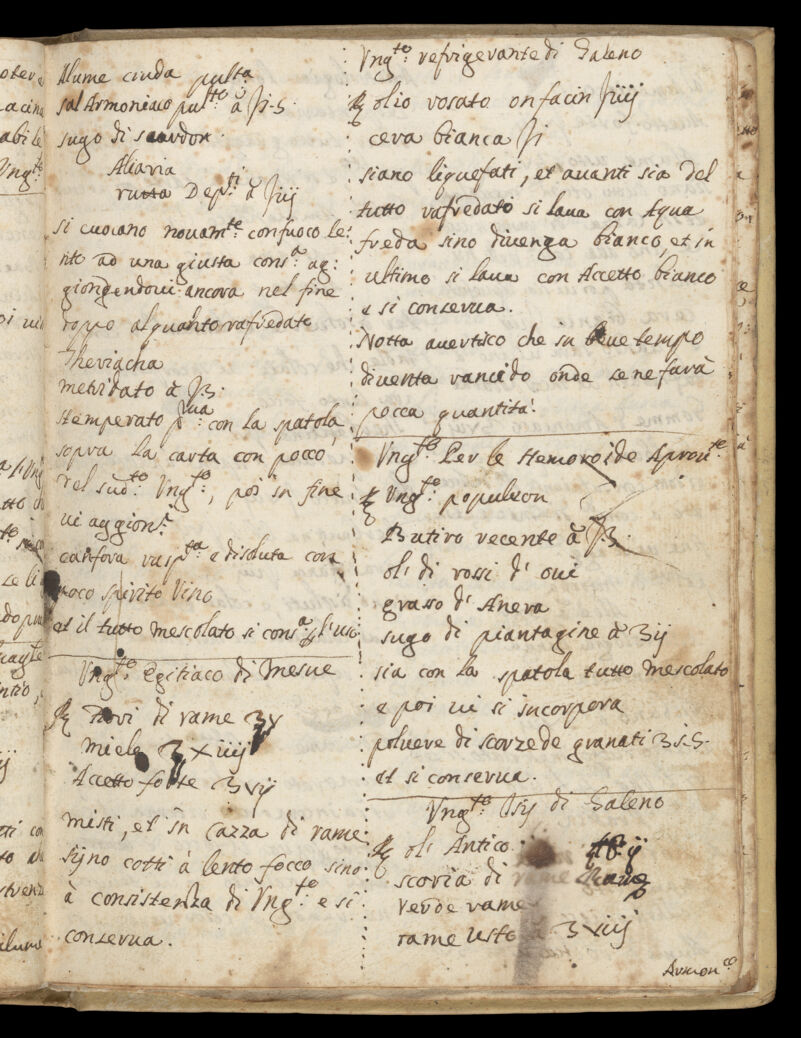 Alume cruda pulta
sal Armoniaco pul.to à ℥i-s
sugo di scordon
Aliaria
ruta Dep.ti à ℥iij
si cuociano novam.te con fuoco le:
nto ad una giusta cons.a ag:
giongendovi ancora nel fine
doppo alquanto rafredato
Theriacha
metridato à ℥s
stemperato p.rua con la spatola
sopra la carta con pocco
del sud.to Vng.to, poi in fine
vi aggion.i
canfora rasp.ta e disoluta con
poco spirito Vino
et il tutto mescolato si cons.a p l'uso
Vng.to Egitiaco di Mesue
℞ Fiori di rame ʒv
miele ʒxiiij
Accetto forte ʒvij
misti, et in cazza di rame
sijno cotti à lento focco sino
à consistenza di Vng.to e si
conserva.
Vng.to refrigerante di Galeno
℞ olio rosato onfacin ℥iiij
cera bianca ℥i
siano liquefati, et avanti sia del
tutto rafredato si lava con Aqua
freda sino divenga bianco, et in
ultimo si lava con Accetto bianco
e si conserva.
Notta avertisco che in breve tempo
diventa rancido onde se ne farà
pocca quantità.
Vng.to Per le Hemoroide Aprov.te
℞ Vng.to populeon
Butiro recente à ℥s
ol: di rossi d' ovi
grasso d' Anera
sugo di piantagine à ʒij
sia con la spatola tutto mescolato
e poi vi si incorpora
polvere di scorze de granati ʒi-s
et si conserva.
Vng.to Isij di Galeno
℞ ol: Antico ℔ij
scoria di rame
Verde rame
rame Usto à ʒviij
Armon.co